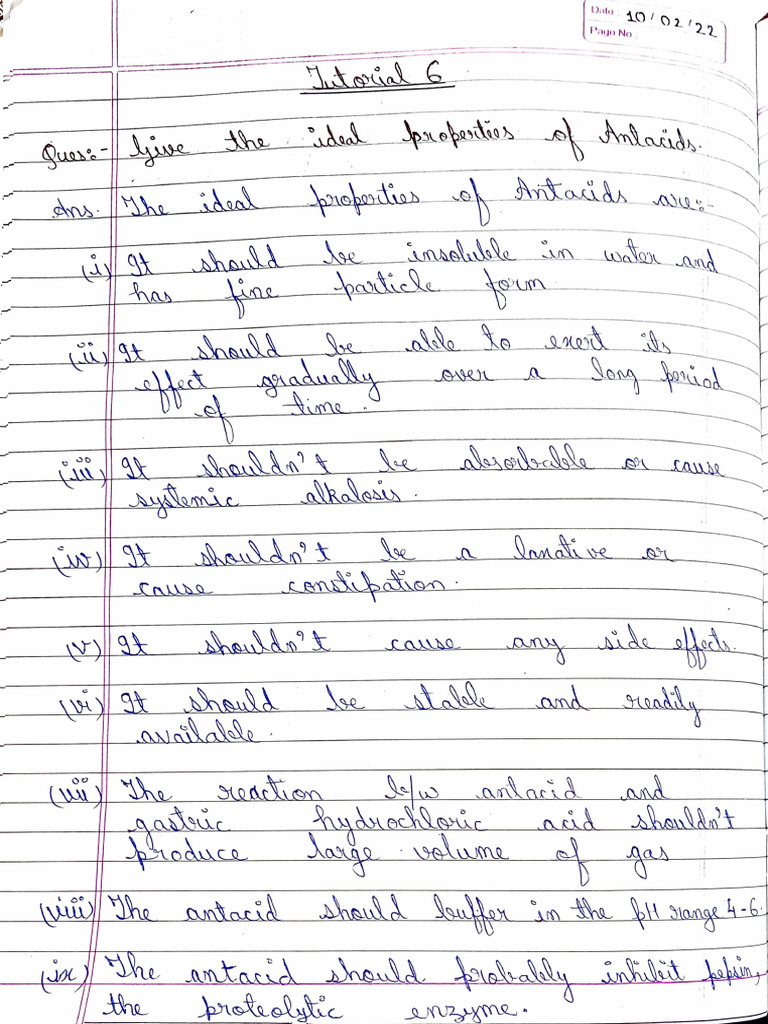 Date: 10/02/22
Page No:
Tutorial 6
Ques:- Give the ideal properties of Antacids.
Ans. The ideal properties of Antacids are:-
(i) It should be insoluble in water and
has fine particle form
(ii) It should be able to exert its
effect gradually over a long period
of time.
(iii) It shouldn't be absorbable or cause
systemic alkalosis.
(iv) It shouldn't be a laxative or
cause constipation.
(v) It shouldn't cause any side effects.
(vi) It should be stable and readily
available.
(vii) The reaction b/w antacid and
gastric hydrochloric acid shouldn't
produce large volume of gas
(viii) The antacid should buffer in the pH range 4-6.
(ix) The antacid should probably inhibit pepsin,
the proteolytic enzyme.